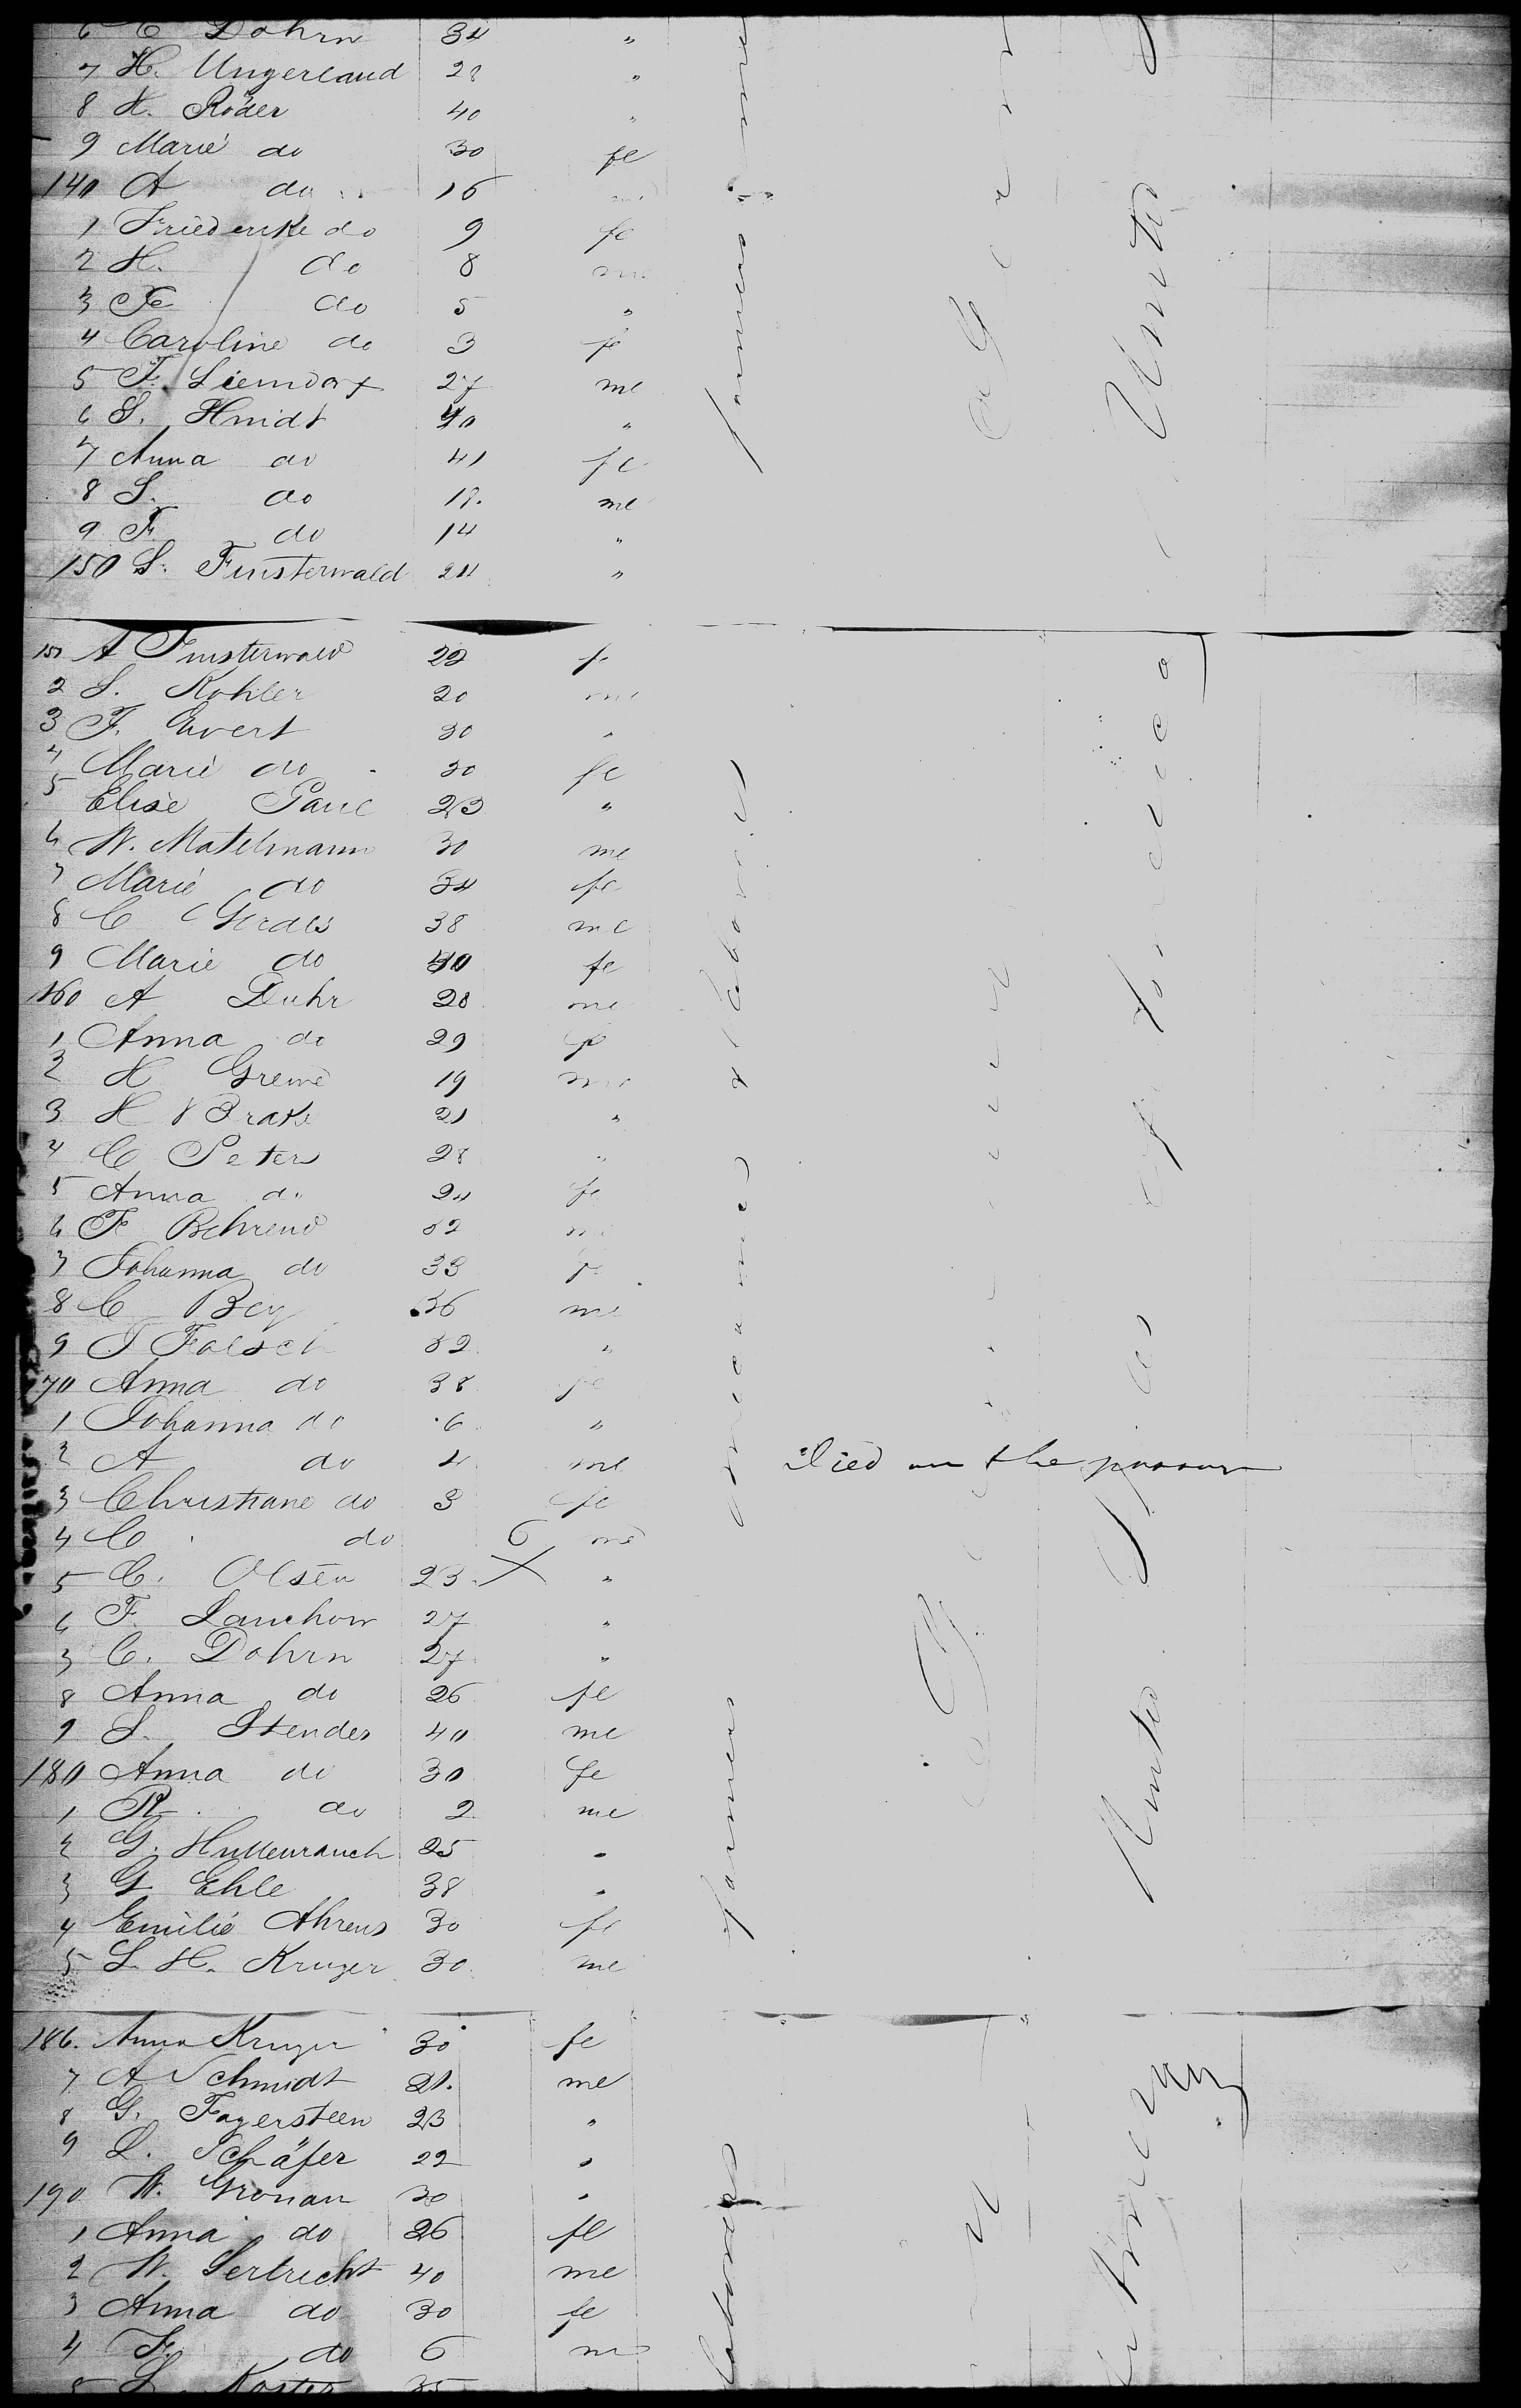 6 C Dohrn 34 "
7 H. Ungerland 28 "
8 H. Röder 40 "
9 Marie do 30 fe
140 A do 16 me
1 Friederike do 9 fe
2 H. do 8 me
3 Fr do 5 "
4 Caroline do 3 fe
5 F. Liemdorf 27 me
6 S. Hmidt 40 "
7 Anna do 41 fe
8 S. do 18. me
9 F. do 14 "
150 S. Finsterwald 24 "
151 A Finsterwald 22 fe
2 S. Kohler 20 me
3 F. Evert 30 "
4 Marie do 30 fe
5 Elise Paul 23 "
6 W. Matelmann 30 me
7 Marie do 34 fe
8 C Gerdes 38 me
9 Marie do 40 fe
160 A Duhr 28 me
1 Anna do 29 fe
2 H Greme 19 me
3 H Brake 21 "
4 C Peters 28 "
5 Anna do 24 fe
6 F Behrend 32 me
7 Johanna do 33 fe
8 C Bey 36 me
9 J Falsch 32 "
170 Anna do 38 fe
1 Johanna do 6 "
2 A do 4 me Died on the
3 Christiane do 3 fe
4 C do 6 me
5 C. Olsen 23. X "
6 F. Lauchow 27 "
7 C. Dohrn 27 "
8 Anna do 26 fe
9 S. Stender 40 me
180 Anna do 30 fe
1 R do 2 me
2 G. Hullenrauch 25 "
3 G Ehle 38 "
4 Emilie Ahrens 30 fe
5 L. H. Kruger 30 me
186. Anna Kruger 30 fe
7 A Schmidt 21. me
8 G. Fagersteen 23 "
9 L. Schäfer 22 "
190 W. Gronau 30 "
1 Anna do 26 fe
2 W. Sertricht 40 me
3 Anna do 30 fe
4 Fr. do 6 me
5 L Koster 35
farmers
United
farmers mechanics & laborers
Germany
United States of America
laborers